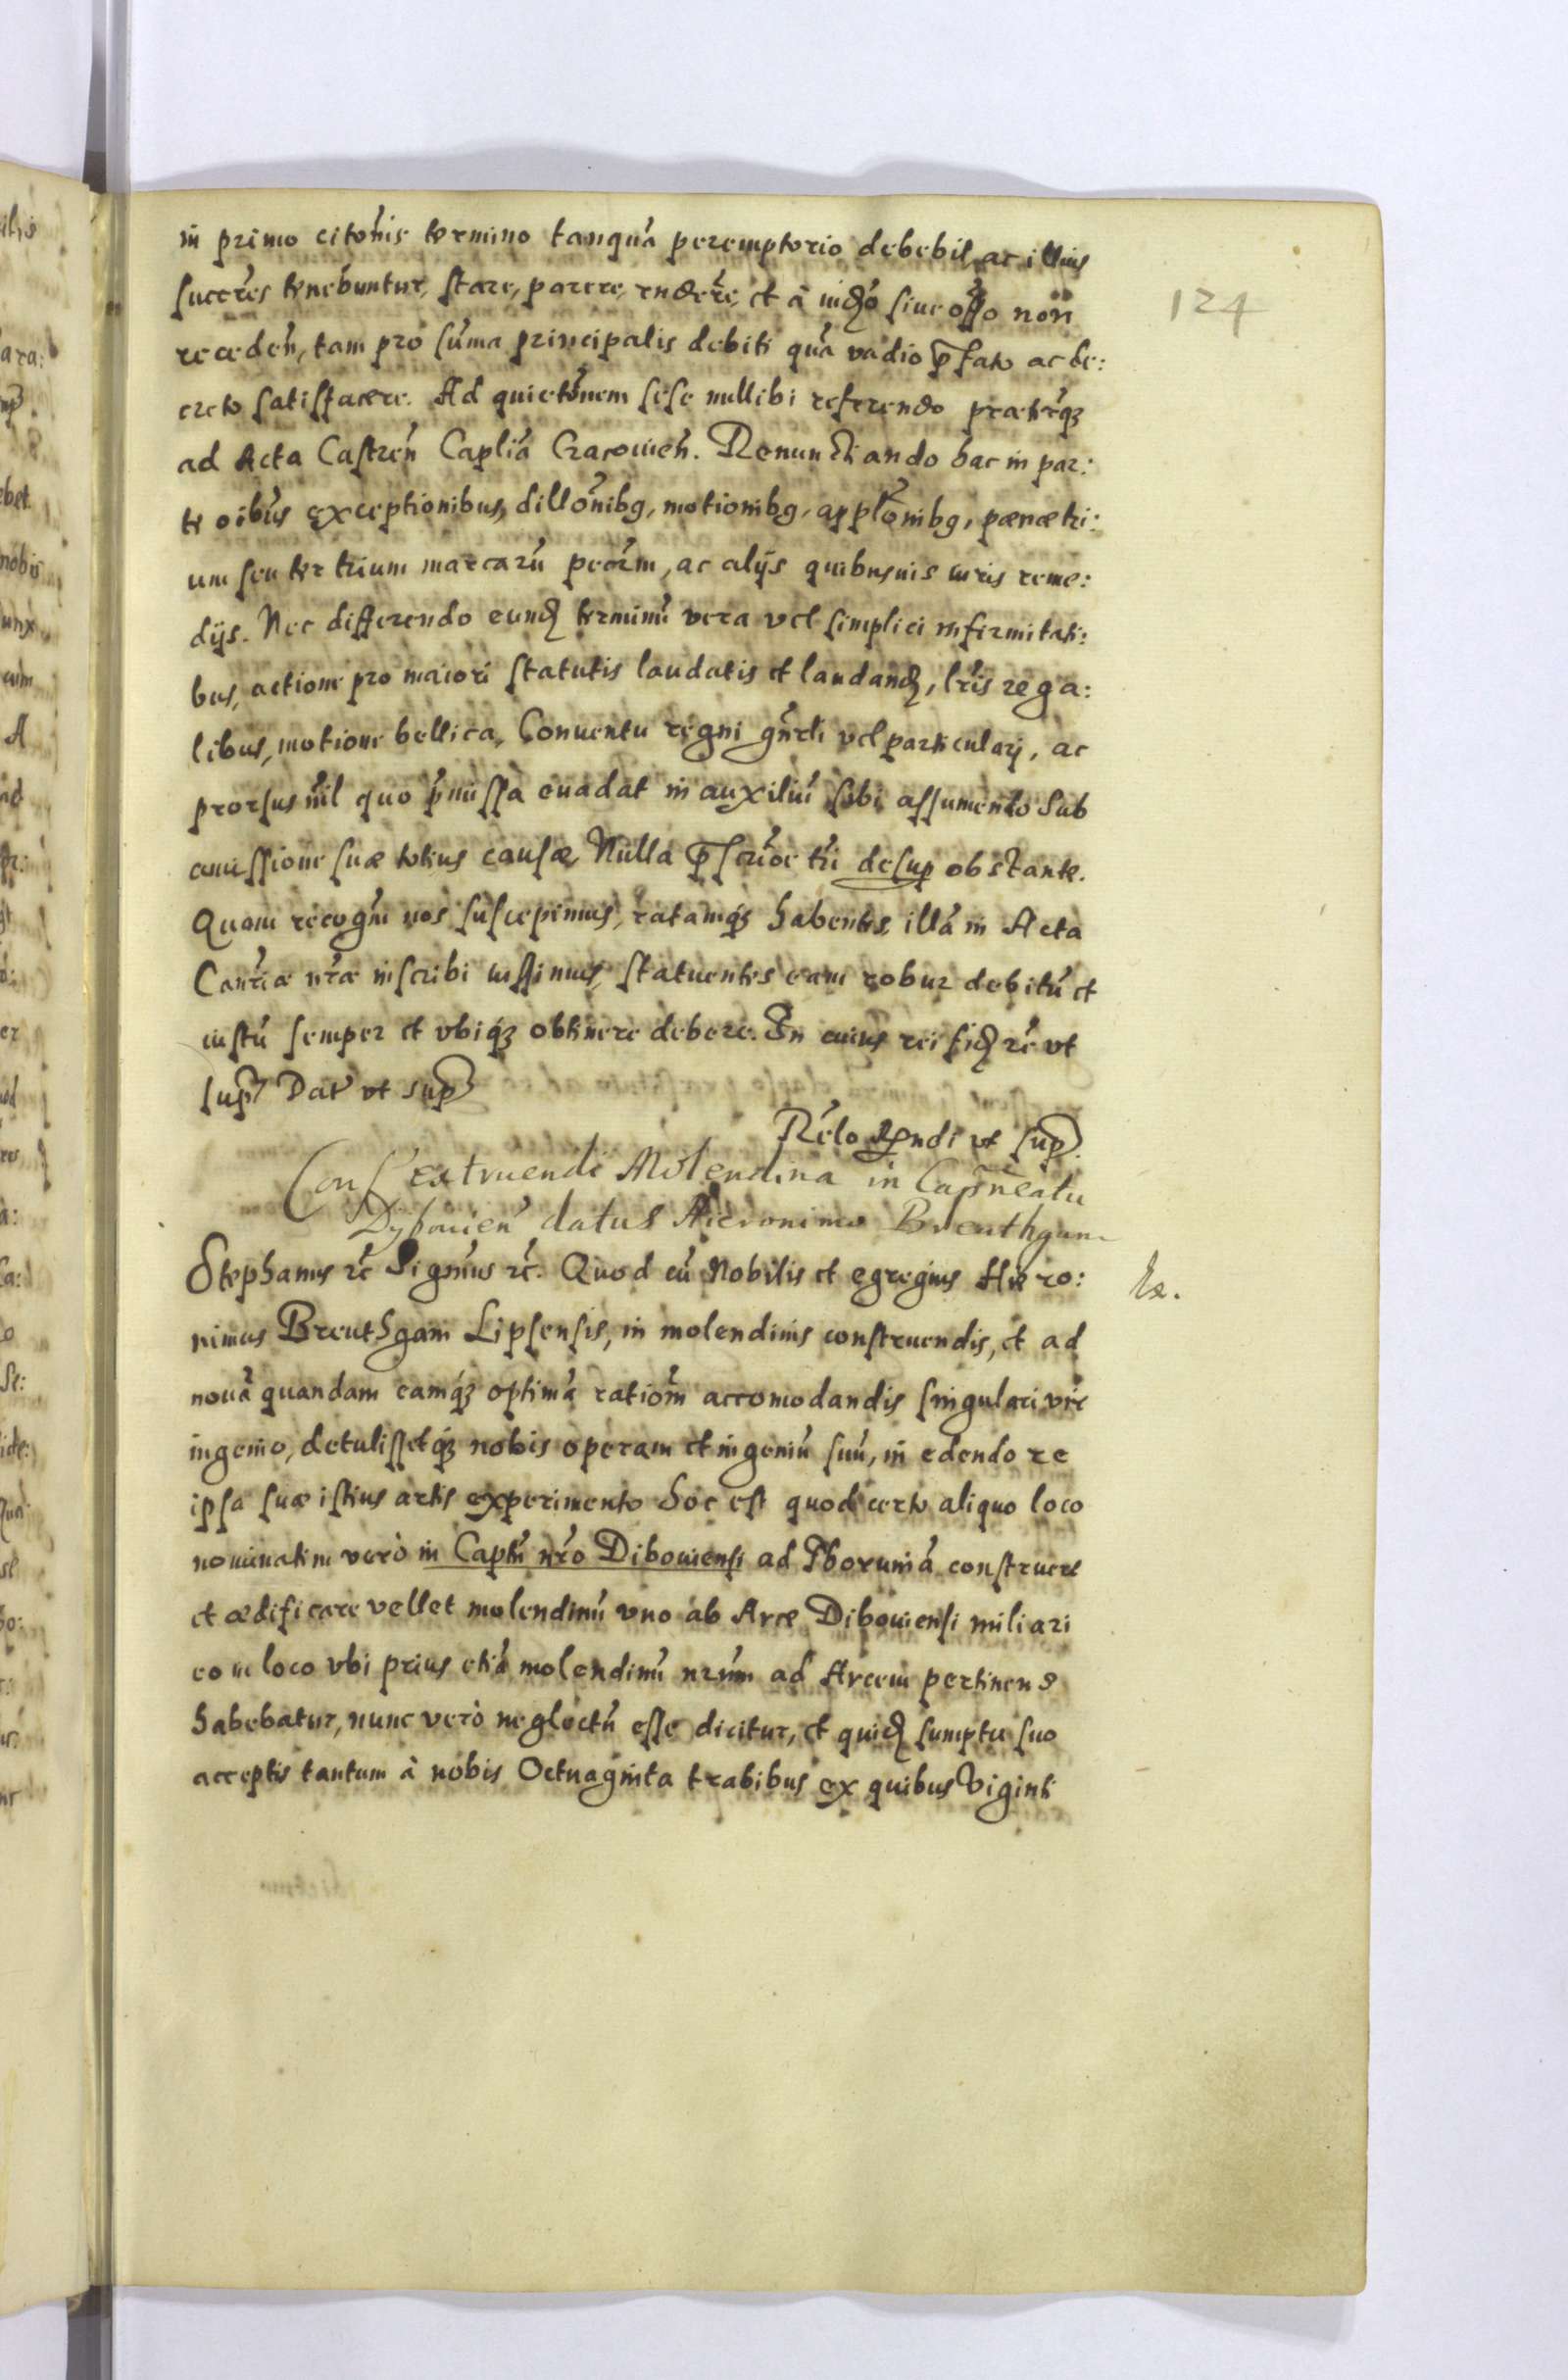 124
in primo citōnis termino tanquā peremptorio debebit, ac illius
succres tenebuntur, stare, parere, rndere, et à iudō siue offo non
receden, tam pro suma principalis debiti quā vadio pfato ac de:
creto satisfacere. Ad quietōnem sese nullibi referendo præterqz
ad Acta Castren Capliā Cracouien. Renunctiando hac in par:
te oibus exceptionibus, dillōnibg, motionibg, applōnibg, pænæ tri:
um seu ter trium marcarū pecūm, ac alijs quibusuis iuris reme:
dijs. Nec differendo eund terminū vera vel simplici infirmitati:
bus, actione pro maiori statutis laudatis et laudand, lris rega:
libus, motione bellica, Conuentu regni gnrli vel particulari, ac
prorsus nil quo pmissa euadat in auxiliū sibi assumendo sub
amissione suæ totius causæ, Nulla pscrioe tri desup obstante.
Quam recogm nos suscepimus, ratamqz habentes, illā in Acta
Canriæ nræ inscribi iussimus, statuentes eam robur debitū et
iustū semper et vbiqz obtinere debere. In cuius rei fid rc vt
sup Dat vt sup
Relo eiusdi vt sup.
Cons extruendi Molendina in Capneatu
Dybouien datus Hieronimo Breuthgam
Stephanus rc Signmus rc. Quod cū Nobilis et egregius Hiero:
nimus Breuthgam Lipsensis, in molendinis construendis, et ad
nouā quandam eamqz optimā ratiom accomodandis singulari vir
ingenio, detulissetqz nobis operam et ingeniū suū, in edendo re
ipsa suæ istius artis experimento hoc est quod certo aliquo loco
nominatim verò in Captu nro Dibouiensi ad Thoruniā construere
et ædificare vellet molendinū vno ab Arce Dibouiensi miliari
eo in loco vbi prius etiā molendinū nrum ad Arcem pertinens
habebatur, nunc verò neglectū esse dicitur, et quid sumptu suo
acceptis tantum à nobis Octuaginta trabibus ex quibus Viginti